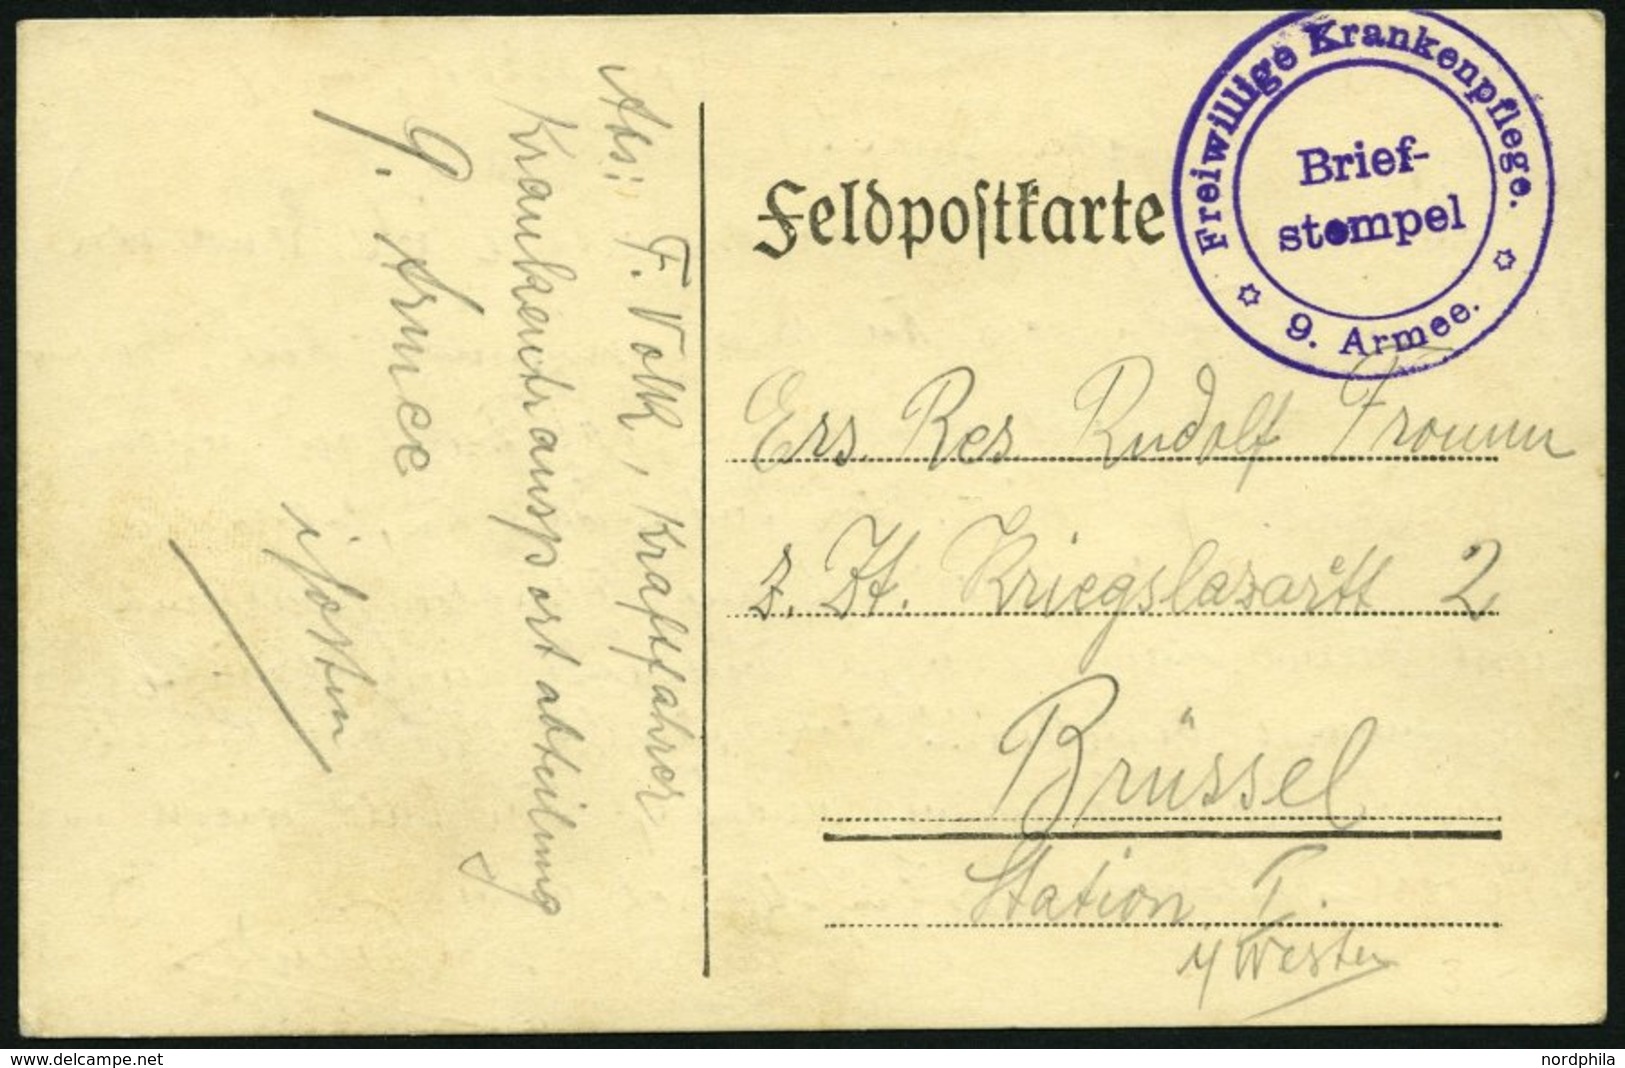 Abs: F. Volk, Kraftfahrer
Krankentransportabteilung
9. Armee
i/Osten
Feldpostkarte
Freiwillige Krankenpflege.
Brief-
stempel
9. Armee.
Ers. Res Rudolf Fromm
z. Zt. Kriegslazarett 2
Brüssel
Station I.
i/Westen
www.delcampe.net
nordphila